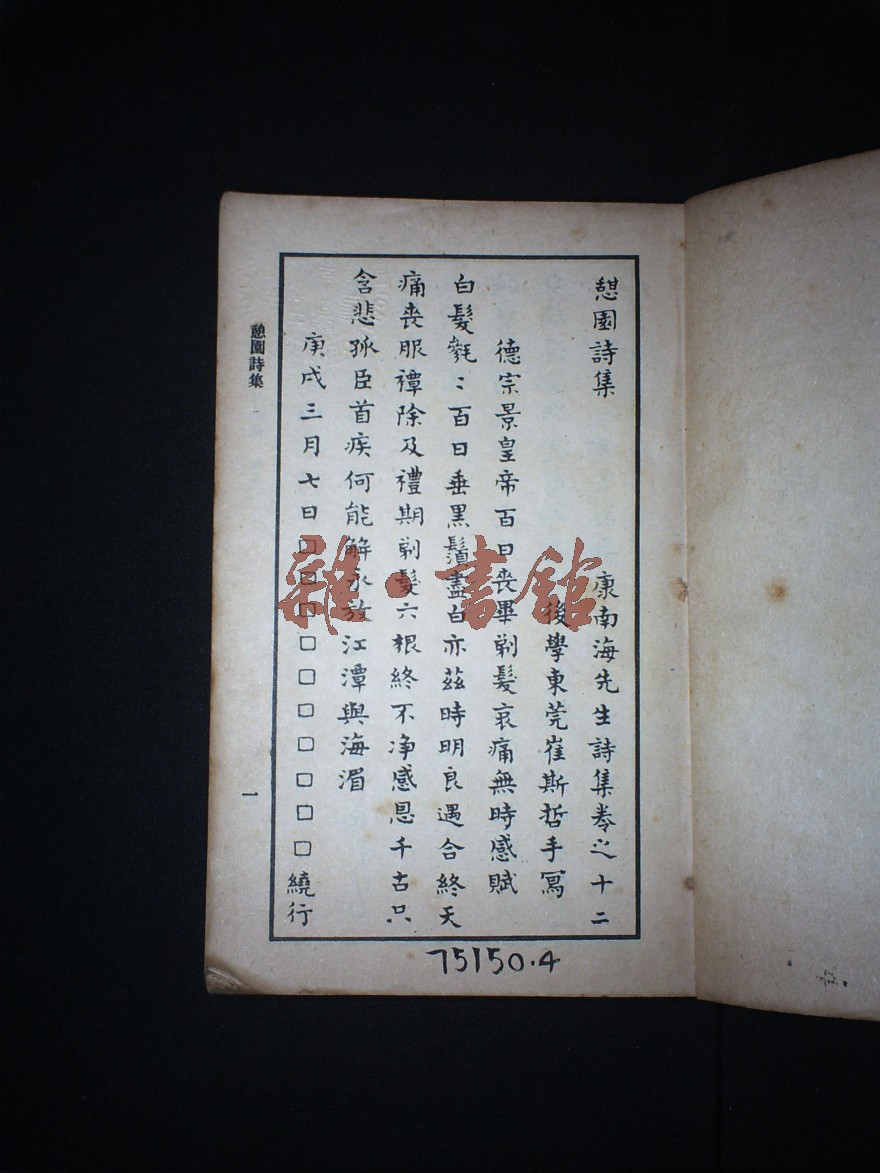 憇園詩集
康南海先生詩集卷之十二
後學東莞崔斯哲手寫
德宗景皇帝百日喪畢剃髮哀痛無時感賦
白髮毿〻百日垂黑鬚盡白亦茲時明良遇合終天
痛喪服禫除及禮期剃髮六根終不净感恩千古只
含悲孤臣首疾何能解永放江潭與海湄
庚戌三月七日□□□□□□□□□□□繞行
憩園詩集
一
雜·書館
75150.4